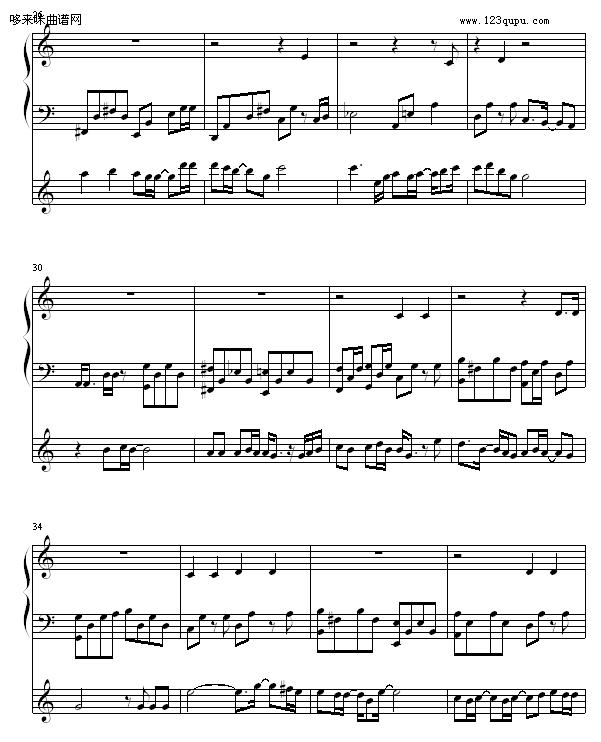 哆来咪曲谱网
www.123qupu.com
26
30
34